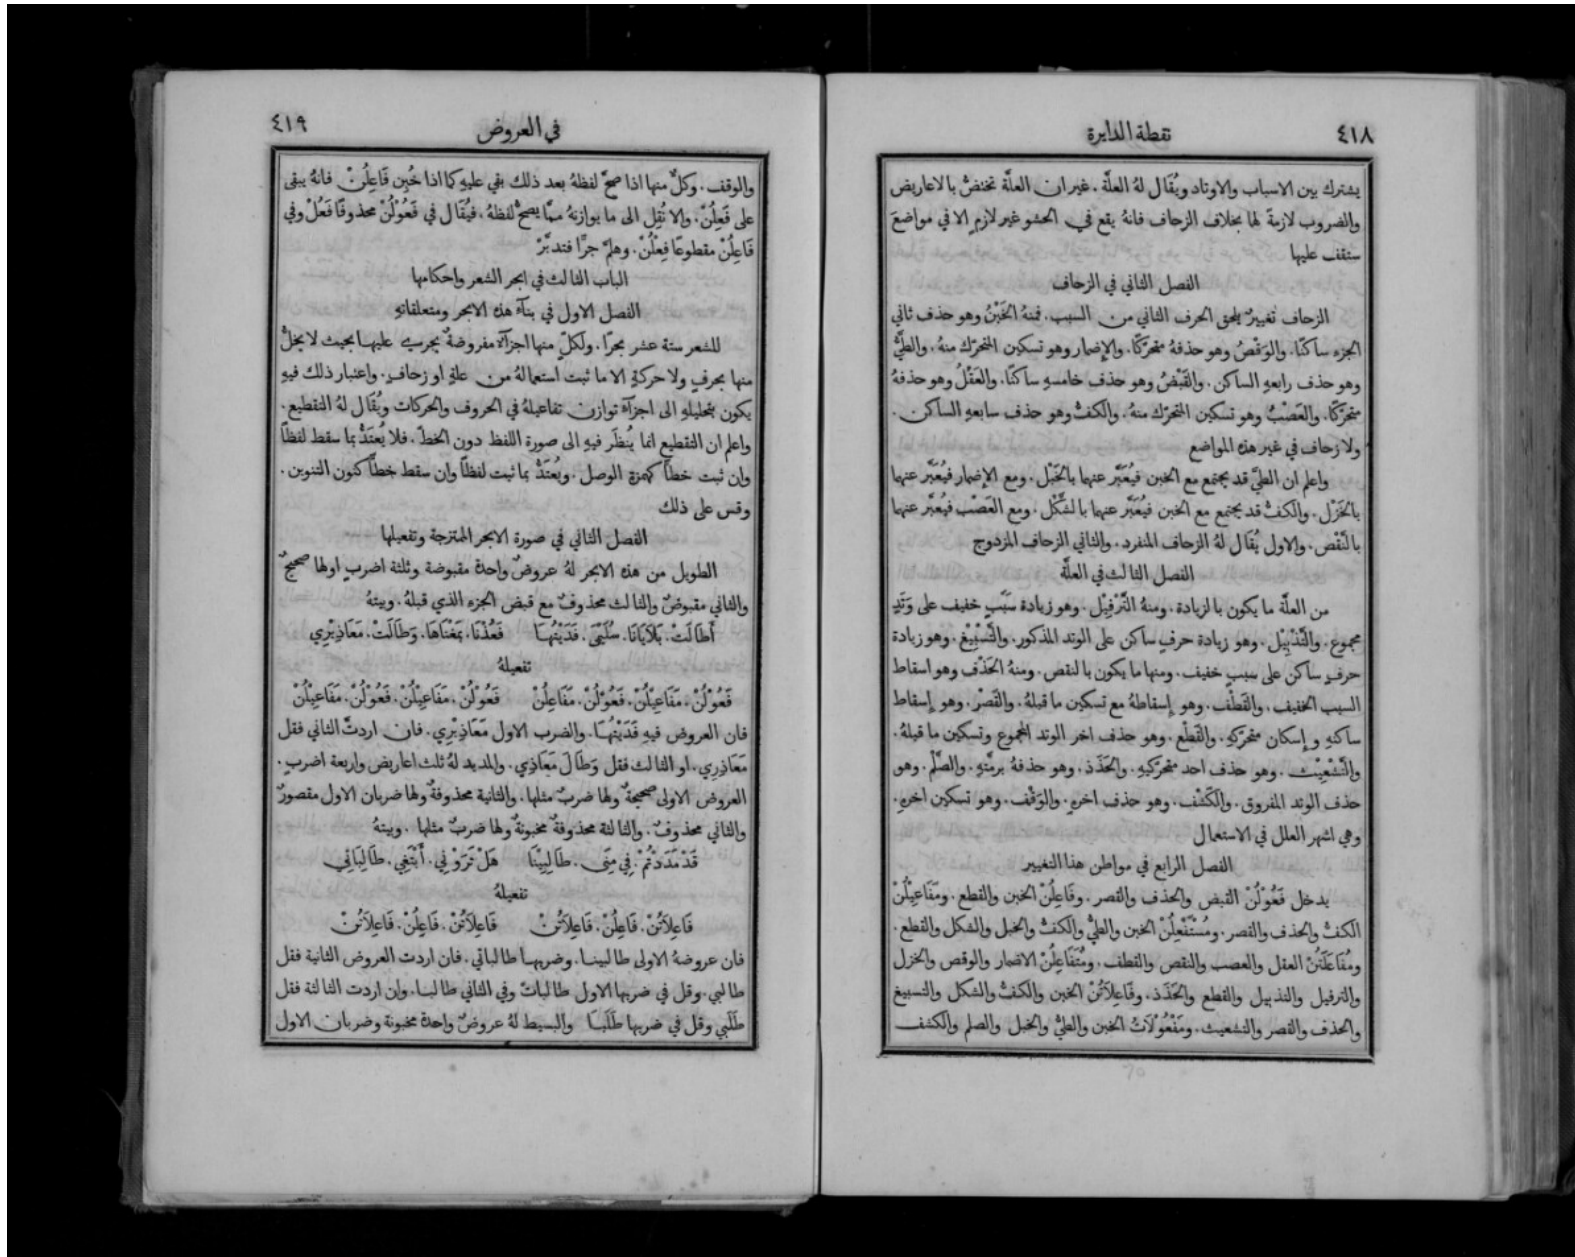 ٤١٨
نقطة الدايرة
يشترك بين الاسباب والاوتاد ويُقَال لهُ العلَّة. غير ان العلَّة تختصُّ بالاعاريض
والضروب لازمةً لها بخلاف الزحاف فانهُ يقع في الحشو غير لازمٍ الا في مواضعَ
ستقف عليها
الفصل الثاني في الزحاف
الزحاف تغييرٌ يلحق الحرف الثاني من السبب. فمنهُ الخَبْنُ وهو حذف ثاني
الجزء ساكنًا. والوَقْصُ وهو حذفهُ متحرّكًا. والإضمار وهو تسكين المتحرّك منهُ. والطَيُّ
وهو حذف رابعهِ الساكن. والقَبْضُ وهو حذف خامسهِ ساكنًا. والعَقْلُ وهو حذفهُ
متحرّكًا. والعَصْبُ وهو تسكين المتحرّك منهُ. والكفُّ وهو حذف سابعهِ الساكن.
ولا زحاف في غير هذه المواضع
واعلم ان الطيَّ قد يجتمع مع الخبن فيُعَبَّر عنهما بالخَبْل. ومع الإضمار فيُعَبَّر عنهما
بالخَزْل. والكفّ قد يجتمع مع الخبن فيُعَبَّر عنهما بالشَّكْل. ومع العَصْب فيُعَبَّر عنهما
بالنَّقْص. والاول يُقَال لهُ الزحاف المنفرد. والثاني الزحاف المزدوج
الفصل الثالث في العلَّة
من العلَّة ما يكون بالزيادة. ومنهُ التَّرْفِيْل. وهو زيادة سَبَبٍ خفيف على وَتَدٍ
مجموع. والتَّذْيِيْل. وهو زيادة حرفٍ ساكن على الوتد المذكور. والتَّسْبِيْغ. وهو زيادة
حرفٍ ساكن على سببٍ خفيف. ومنها ما يكون بالنقص. ومنهُ الحَذْف وهو اسقاط
السبب الخفيف. والقَطْف. وهو إسقاطهُ مع تسكين ما قبلهُ. والقَصْر. وهو إسقاط
ساكنهِ وإسكان متحرّكهِ. والقَطْع. وهو حذف اخر الوتد المجموع وتسكين ما قبلهُ.
والتَّشْعِيْث. وهو حذف احد متحرّكيهِ. والحَذَذ. وهو حذفهُ برمَّتهِ. والصَّلْم. وهو
حذف الوتد المفروق. والكَشْف. وهو حذف اخرهِ. والوَقْف. وهو تسكين اخرهِ.
وهي اشهر العلل في الاستعمال
الفصل الرابع في مواطن هذا التغيير
يدخل فَعُوْلُنْ القبض والحذف والقصر. وفَاعِلُنْ الخبن والقطع. ومَفَاعِيْلُنْ
الكفّ والحذف والقصر. ومُسْتَفْعِلُنْ الخبن والطيُّ والكفُّ والخبل والشكل والقطع.
ومُفَاعَلَتُنْ العقل والعصب والنقص والقطف. ومُتَفَاعِلُنْ الاضمار والوقص والخزل
والترفيل والتذييل والقطع والحَذَذ. وفَاعِلَاتُنْ الخبن والكفُّ والشكل والتسبيغ
والحذف والقصر والتشعيث. ومَفْعُوْلَاتُ الخبن والطيُّ والخبل والصلم والكشف
٤١٩
في العروض
والوقف. وكلٌّ منها اذا صحَّ لفظهُ بعد ذلك بقي عليهِ كما اذا خُبِن فَاعِلُنْ فانهُ يبقى
على فَعِلُنْ. والا نُقِل الى ما يوازنهُ ممَّا يصحُّ لفظهُ. فيُقَال في فَعُوْلُنْ محذوفًا فَعُلْ وفي
فَاعِلُنْ مقطوعًا فِعْلُنْ. وهلمَّ جرًّا فتدبَّرْ
الباب الثالث في ابحر الشعر واحكامها
الفصل الاول في بنآء هذه الابحر ومتعلقاتهِ
للشعر ستة عشر بحرًا. ولكلٍّ منها اجزآءٌ مفروضةٌ يجري عليها بحيث لا يخلُّ
منها بحرفٍ ولا حركةٍ الا ما ثبت استعمالهُ من علةٍ او زحافٍ. واعتبار ذلك فيهِ
يكون بتحليلهِ الى اجزآءٍ توازن تفاعيلهُ في الحروف والحركات ويُقَال لهُ التقطيع.
واعلم ان التقطيع انما يُنظَر فيهِ الى صورة اللفظ دون الخطّ. فلا يُعتَدُّ بما سقط لفظًا
وان ثبت خطًّا كهمزة الوصل. ويُعتَدُّ بما ثبت لفظًا وان سقط خطًّا كنون التنوين.
وقس على ذلك
الفصل الثاني في صورة الابحر الممتزجة وتفعيلها
الطويل من هذه الابحر لهُ عروضٌ واحدة مقبوضة وثلثة اضربٍ اولها صحيحٌ
والثاني مقبوضٌ والثالث محذوفٌ مع قبض الجزء الذي قبلهُ. وبيتهُ
أَطَالَتْ. بَلَايَانَا. سُلَيْمَى. فَدَيْتُهَا فَعُدْنَا. بِمَغْنَاهَا. وَطَالَتْ. مَعَاذِيْرِي
تفعيلهُ
فَعُوْلُنْ. مَفَاعِيْلُنْ. فَعُوْلُنْ. مَفَاعِلُنْ فَعُوْلُنْ. مَفَاعِيْلُنْ. فَعُوْلُنْ. مَفَاعِيْلُنْ
فان العروض فيهِ فَدَيْتُهَا. والضرب الاول مَعَاذِيْرِي. فان اردتَّ الثاني فقل
مَعَاذِرِي. او الثالث فقل وَطَالَ مَعَاذِي. والمديد لهُ ثلث اعاريض واربعة اضربٍ.
العروض الاولى صحيحةٌ ولها ضربٌ مثلها. والثانية محذوفةٌ ولها ضربان الاول مقصورٌ
والثاني محذوفٌ. والثالثة محذوفةٌ مخبونةٌ ولها ضربٌ مثلها. وبيتهُ
قَدْ مَدَدْتُمْ. فِي مِنًى. طَالِبِيْنَا هَلْ تَرَوْنِي. أَبْتَغِي. طَالِبَاتِي
تفعيلهُ
فَاعِلَاتُنْ. فَاعِلُنْ. فَاعِلَاتُنْ فَاعِلَاتُنْ. فَاعِلُنْ. فَاعِلَاتُنْ
فان عروضهُ الاولى طالبينا. وضربها طالباتي. فان اردت العروض الثانية فقل
طالبي. وقل في ضربها الاول طالباتْ وفي الثاني طالبا. وان اردت الثالثة فقل
طَلَبِي وقل في ضربها طَلَبَا والبسيط لهُ عروضٌ واحدة مخبونة وضربان الاول